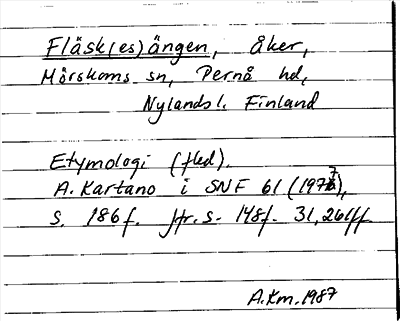 Fläsk(es)ängen, åker,
Mörskoms sn, Pernå hd,
Nylands l. Finland
Etymologi (fled).
A. Kartano i SNF 61 (1977),
s. 186 f. jfr. s. 148 f. 31, 261 ff
A.Km. 1987